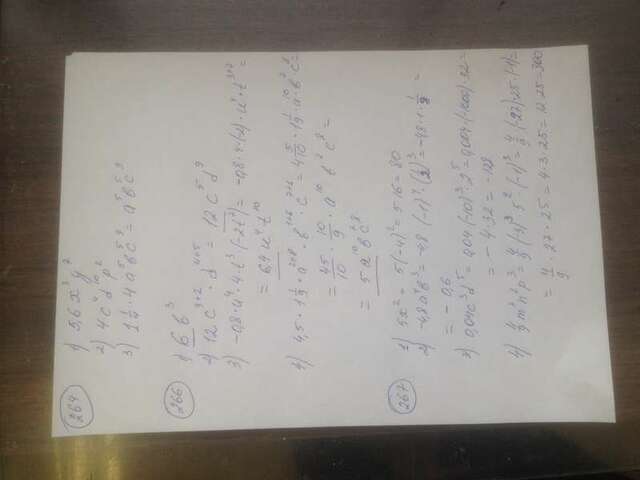 264 1) 5,6 x³ y²
2) 4c⁴ d¹⁰ p²
3) 1 1/4 · 4 a⁵ b c⁵ ⁹ = a⁵ b c⁵ ⁹
266 1) 6 b³
2) 12 c³⁺² · d⁴⁺⁵ = 12 c⁵ d⁹
3) -0,8 · u⁴ · 4 · t³ · (-2t⁷) = -0,8 · 4 · (-2) · u⁴ · t³⁺⁷ =
= 6,4 u⁴ t¹⁰
4) 4,5 · 1 1/9 · a²⁺⁸ · b¹⁺⁶ · c²⁺⁶ = 4 5/10 · 1 1/9 · a¹⁰ b⁷ c⁸ =
= 45/10 · 10/9 · a¹⁰ b⁷ c⁸ =
= 5 a¹⁰ b⁷ c⁸
267 1) 5x² = 5(-4)² = 5·16 = 80
2) -4,8a⁴b³ = -4,8 · (-1)⁴ · (1/2)³ = -4,8 · 1 · 1/8 =
= -0,6
3) 0,04c³d⁵ = 0,04 · (-10)³ · 2⁵ = 0,004 · (-1000) · 32 =
= -4·32 = -128
4) 4/9 m³n²p³ = 4/9 · (-3)³ · 5² · (-1)³ = 4/9 · (-27) · 25 · (-1) =
= 4/9 · 27 · 25 = 4·3·25 = 12·25 = 300